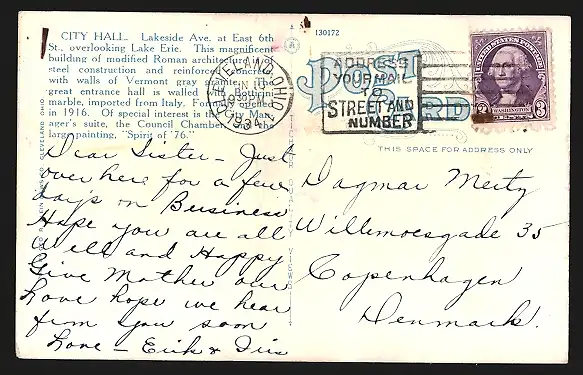 CITY HALL. Lakeside Ave. at East 6th
St., overlooking Lake Erie. This magnificent
building of modified Roman architecture is of
steel construction and reinforced concrete
with walls of Vermont gray granite. The
great entrance hall is walled with Botticini
marble, imported from Italy. Formally opened
in 1916. Of special interest is the City Man-
ager's suite, the Council Chamber and the
large painting, "Spirit of '76."
130172
CLEVELAND, OHIO
JUN 10
1934
ADDRESS
YOUR MAIL
TO
STREET AND
NUMBER
POST
CARD
UNITED STATES POSTAGE
WASHINGTON
3 3
THIS SPACE FOR ADDRESS ONLY
Dear Sister - Just
over here for a few
days on Business
Hope you are all
Well and Happy
Give Mother our
Love hope we hear
from you soon
Love - Erik & Iris
Dagmar Meitz
Willemoesgade 35
Copenhagen
Denmark.